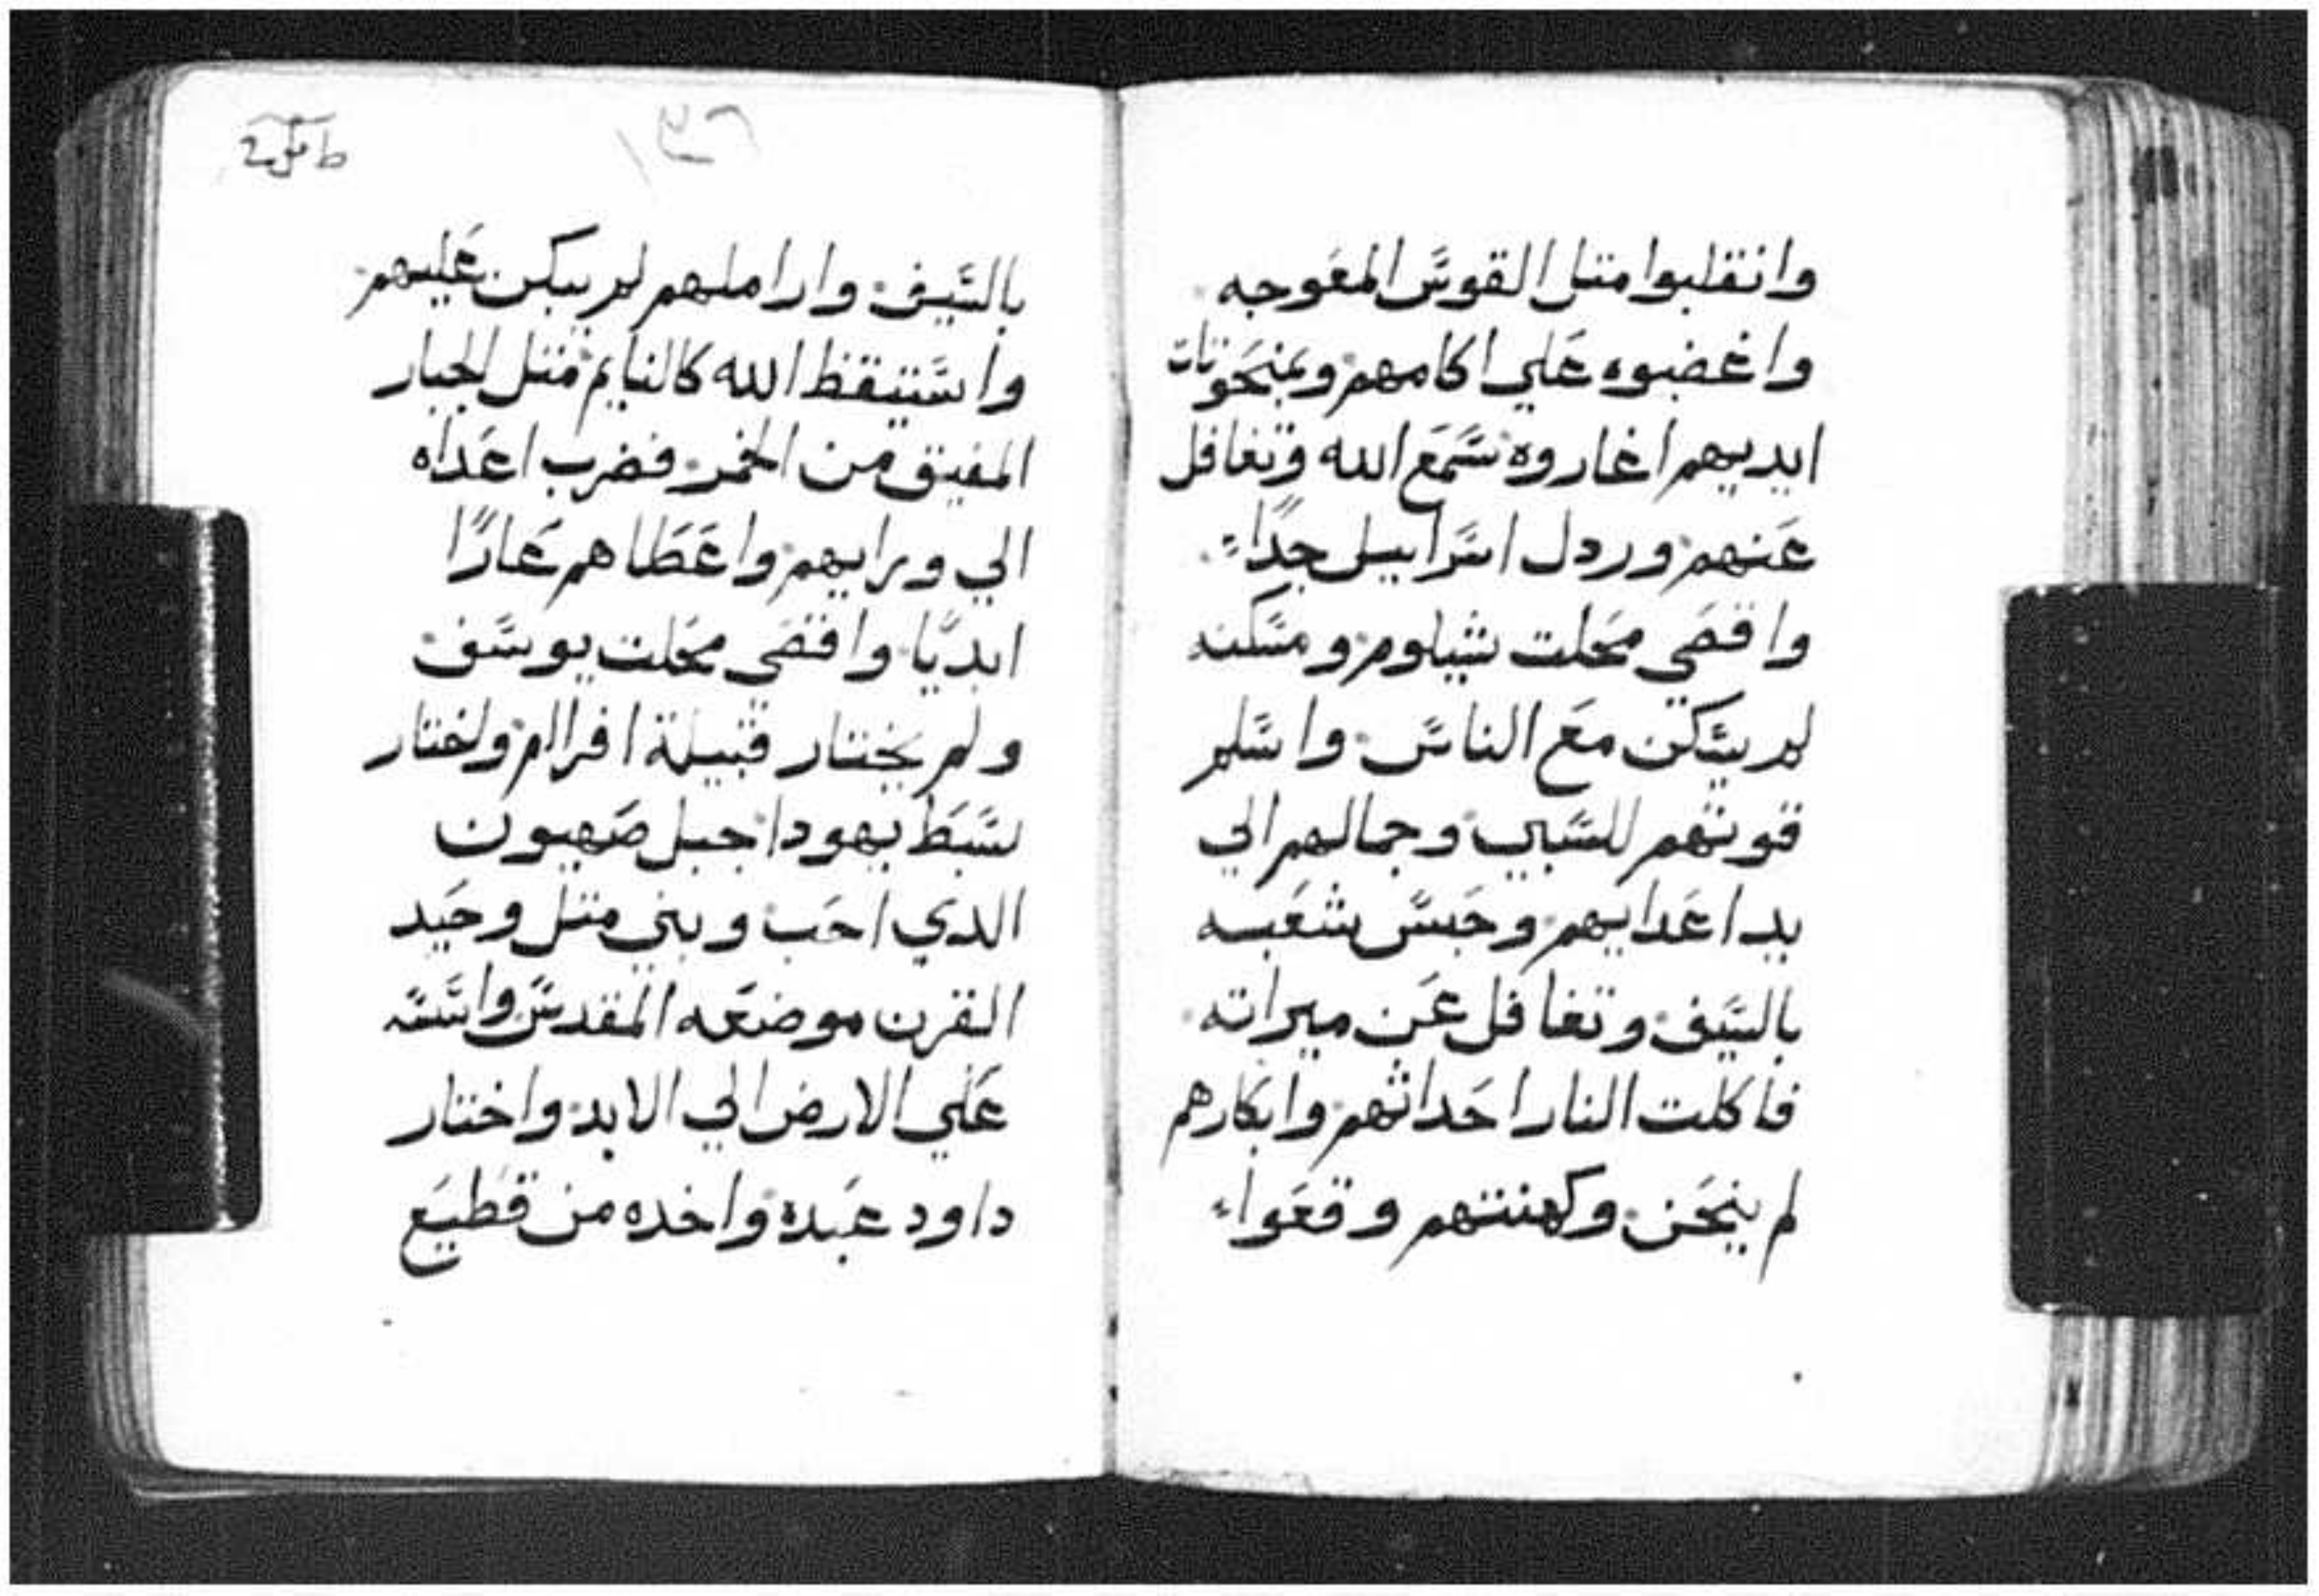 وانقلبوا متل القوس المعوجه
واغضبوه علي اكامهم وبمنحوتات
ايديهم اغاروه سمع الله وتغافل
عنهم وردل اسراييل جدًا
واقصي محلت شيلوم ومسكنه
لم يسكن مع الناس واسلم
قوتهم للسبي وجمالهم الي
يد اعدايهم وحبس شعبه
بالسيف وتغافل عن ميراته
فاكلت النار احداثهم وابكارهم
لم ينحن وكهنتهم وقعوا
بالسيف واراملهم لم يبكن عليهم
واستيقظ الله كالنايم متل الجبار
المفيق من الخمر فضرب اعداه
الي ورايهم واعطاهم عارًا
ابديًا واقصي محلت يوسف
ولم يختار قبيلة افرام واختار
سبط يهودا جبل صهيون
الدي احب وبني متل وحيد
القرن موضعه المقدس واسسه
علي الارض الي الابد واختار
داود عبده واخده من قطيع